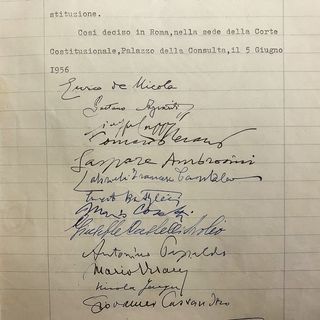 stituzione.
Così deciso in Roma,nella sede della Corte
Costituzionale,Palazzo della Consulta,il 5 Giugno
1956
Enrico de Nicola
Gaetano Azzariti
Tomaso Perassi
Gaspare Ambrosini
Ernesto Battaglini
Mario Cosatti
Antonino Papaldo
Mario Bracci
Nicola Jaeger
Giovanni Cassandro